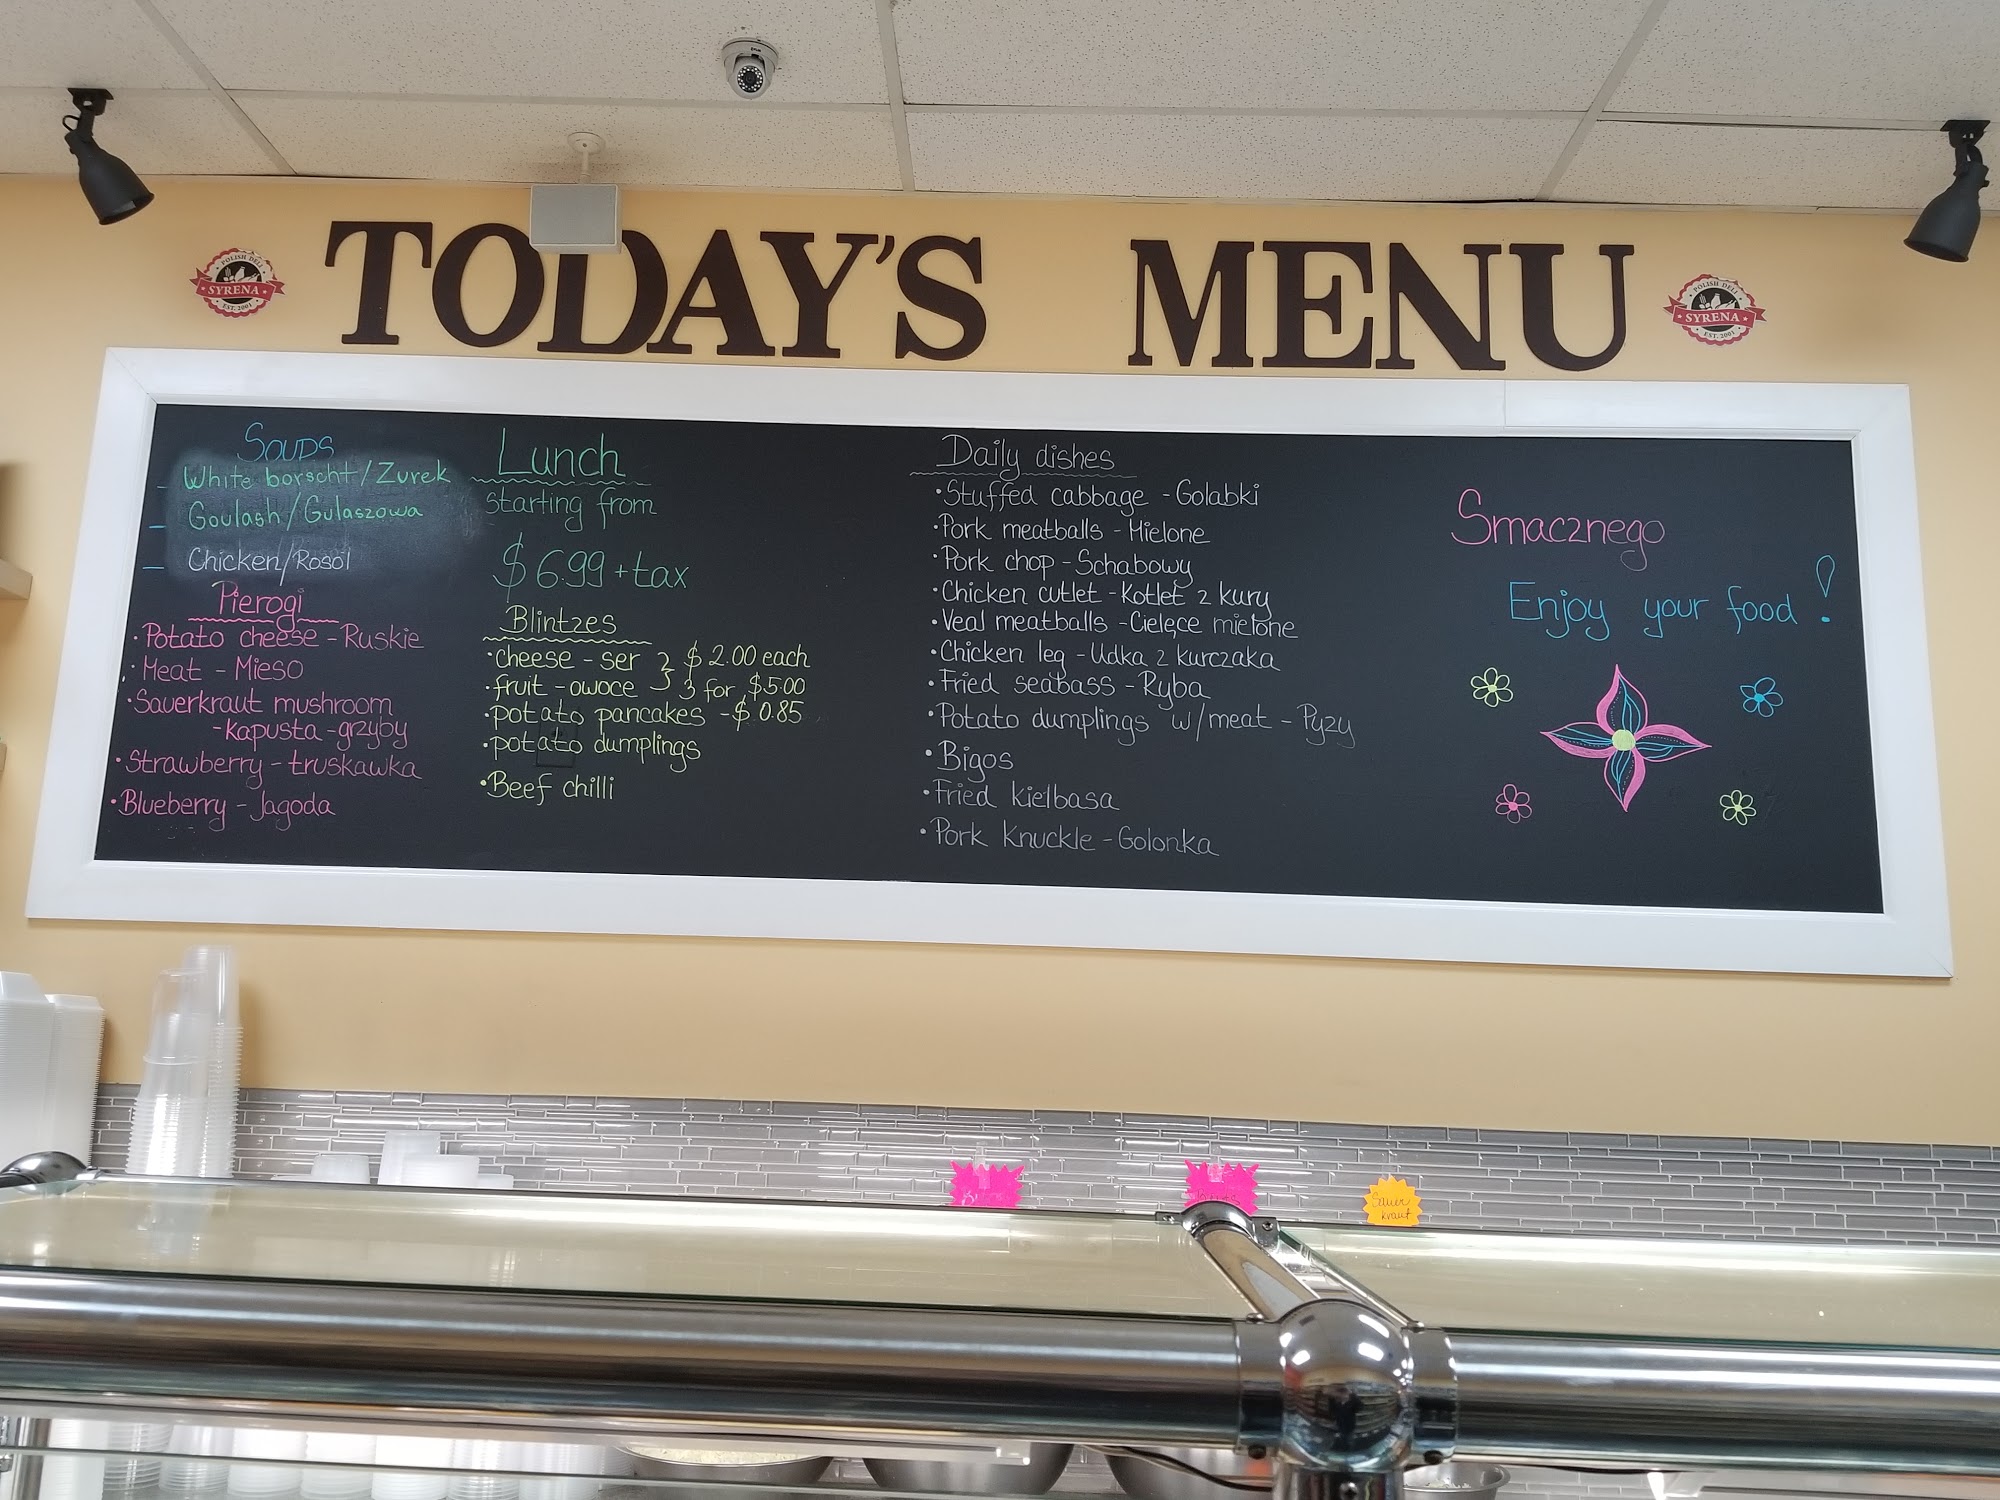 TODAY'S MENU
POLISH DELI
SYRENA
EST. 2001
POLISH DELI
SYRENA
EST. 2001
Soups
White borscht/Zurek
Goulash/Gulaszowa
Chicken/Rosol
Pierogi
Potato cheese - Ruskie
Meat - Mieso
Sauerkraut mushroom
- kapusta - grzyby
Strawberry - truskawka
Blueberry - Jagoda
Lunch
starting from
$6.99 + tax
Blintzes
cheese - ser } $2.00 each
fruit - owoce } 3 for $5.00
potato pancakes - $0.85
potato dumplings
Beef chilli
Daily dishes
Stuffed cabbage - Golabki
Pork meatballs - Mielone
Pork chop - Schabowy
Chicken cutlet - Kotlet z kury
Veal meatballs - Cielęce mielone
Chicken leg - Udka z kurczaka
Fried seabass - Ryba
Potato dumplings w/meat - Pyzy
Bigos
Fried kielbasa
Pork knuckle - Golonka
Smacznego
Enjoy your food!
Sauer
kraut